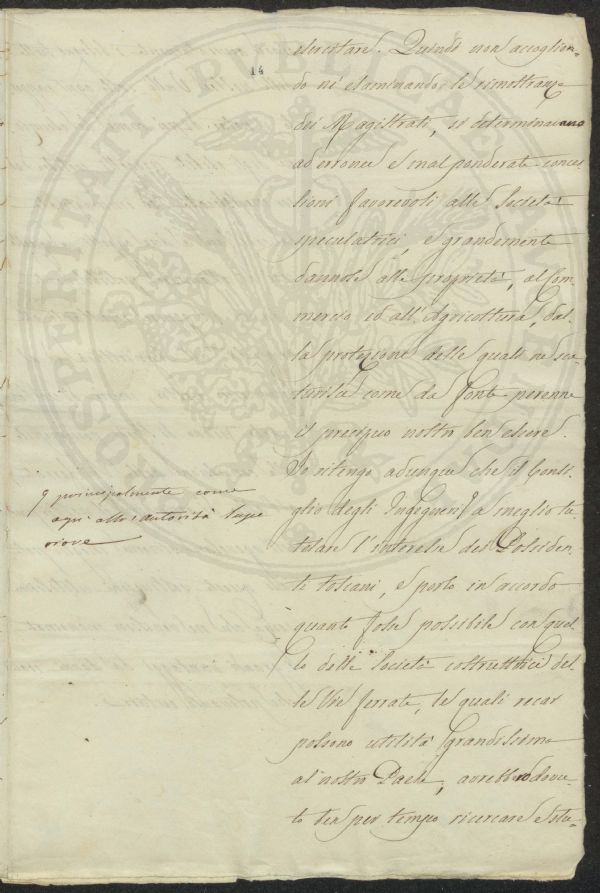 14
esercitare. Quindi non accoglien-
do nè esaminando le rimostranze
dei Magistrati, si determinavano
ad erronee e mal ponderate conces
sioni favorevoli alle Società
speculatrici, e grandemente
dannose alle proprietà, al Com-
mercio ed all'Agricoltura, dal-
la protezione delle quali ne sca-
turisce come da fonte perenne
il precipuo nostro ben essere.
Io ritengo adunque che il Consi-
glio degli Ingegneri a meglio tu-
telare l'interesse dei Possiden-
ti toscani, e porlo in accordo
quanto fosse possibile con quel-
lo delle Società costruttrici del
le Vie ferrate, le quali recar
possono utilità grandissima
al nostro Paese, avrebbero dovu-
to per tempo ricercare e stu-
principalmente come
allo autorità supe
riore
PROSPERITATI PUBLICAE